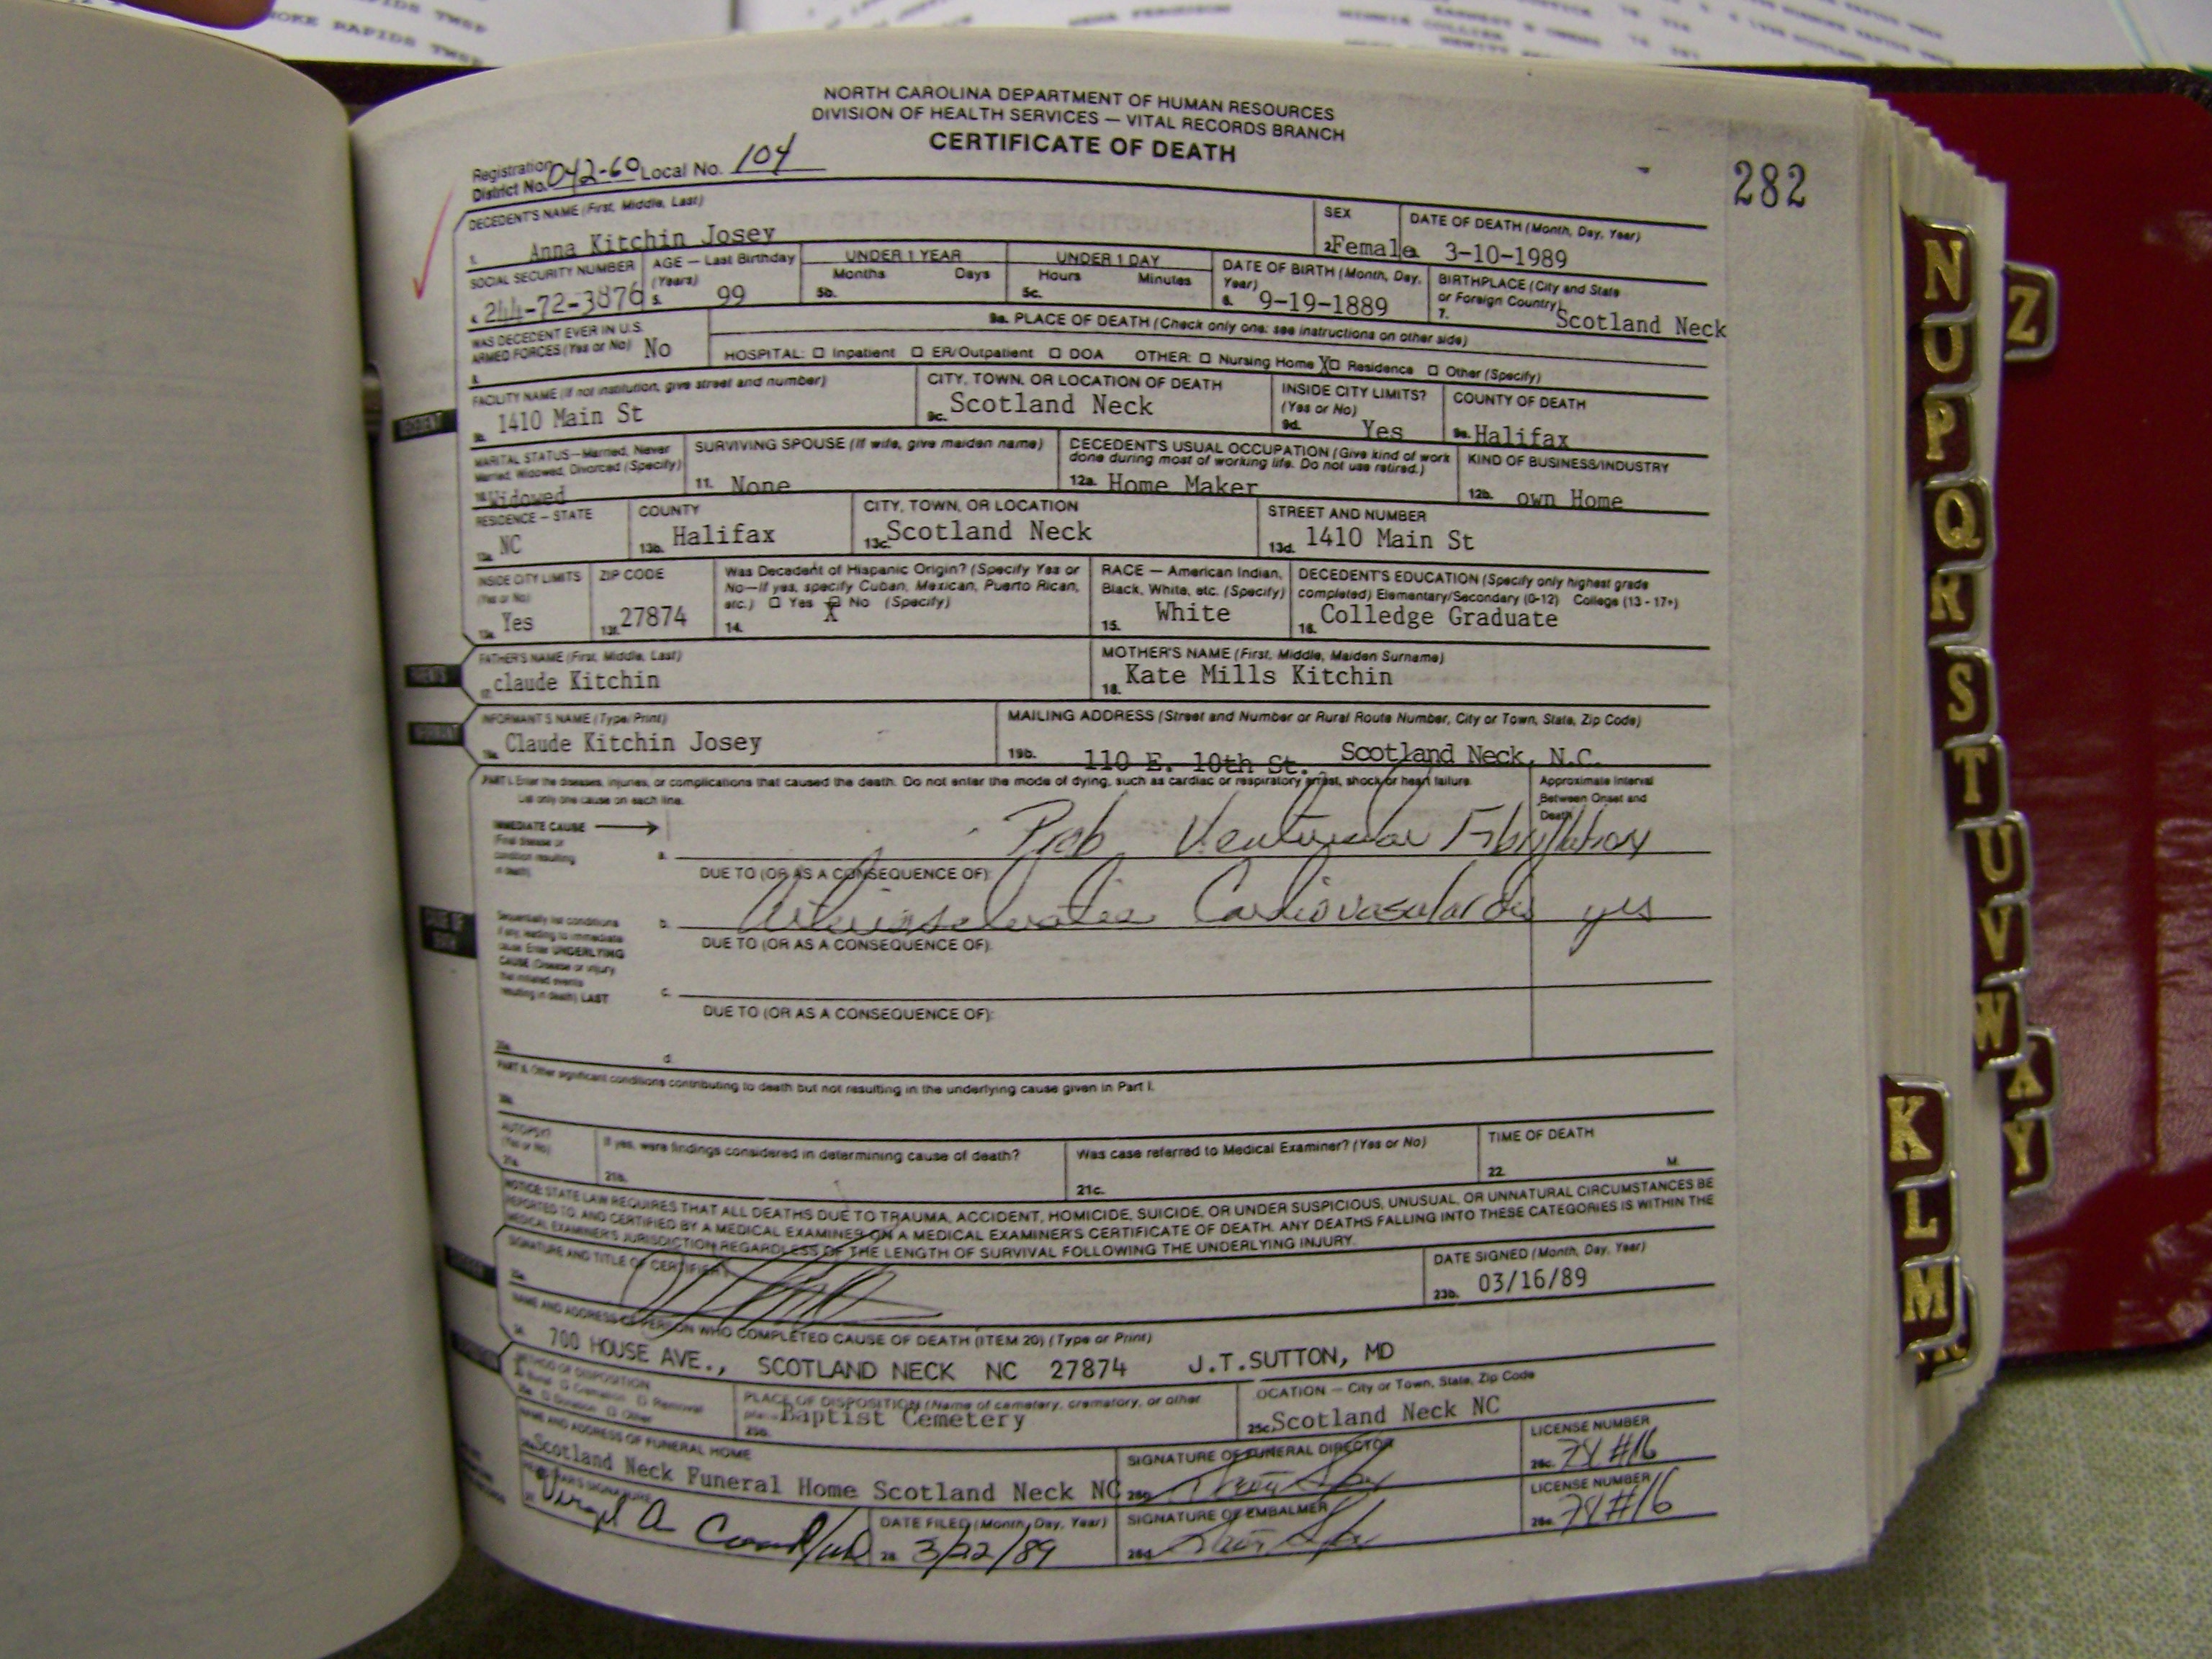 OKE RAPIDS TWSP
NORTH CAROLINA DEPARTMENT OF HUMAN RESOURCES
DIVISION OF HEALTH SERVICES — VITAL RECORDS BRANCH
CERTIFICATE OF DEATH
282
Registration District No. 042-60 Local No. 104
DECEDENT'S NAME (First, Middle, Last)
1. Anna Kitchin Josey
SEX
2. Female
DATE OF DEATH (Month, Day, Year)
3-10-1989
SOCIAL SECURITY NUMBER
4. 244-72-3876
AGE — Last Birthday (Years)
5. 99
UNDER 1 YEAR
Months Days
5b.
UNDER 1 DAY
Hours Minutes
5c.
DATE OF BIRTH (Month, Day, Year)
6. 9-19-1889
BIRTHPLACE (City and State or Foreign Country)
7. Scotland Neck
WAS DECEDENT EVER IN U.S. ARMED FORCES (Yes or No) No
8.
9a. PLACE OF DEATH (Check only one: see instructions on other side)
HOSPITAL: ☐ Inpatient ☐ ER/Outpatient ☐ DOA OTHER: ☐ Nursing Home X☐ Residence ☐ Other (Specify)
FACILITY NAME (If not institution, give street and number)
9b. 1410 Main St
CITY, TOWN, OR LOCATION OF DEATH
9c. Scotland Neck
INSIDE CITY LIMITS? (Yes or No)
9d. Yes
COUNTY OF DEATH
9e. Halifax
MARITAL STATUS—Married, Never Married, Widowed, Divorced (Specify)
10. Widowed
SURVIVING SPOUSE (If wife, give maiden name)
11. None
DECEDENT'S USUAL OCCUPATION (Give kind of work done during most of working life. Do not use retired.)
12a. Home Maker
KIND OF BUSINESS/INDUSTRY
12b. own Home
RESIDENCE — STATE
13a. NC
COUNTY
13b. Halifax
CITY, TOWN, OR LOCATION
13c. Scotland Neck
STREET AND NUMBER
13d. 1410 Main St
INSIDE CITY LIMITS (Yes or No)
13e. Yes
ZIP CODE
13f. 27874
Was Decedent of Hispanic Origin? (Specify Yes or No—If yes, specify Cuban, Mexican, Puerto Rican, etc.) ☐ Yes ☐ No (Specify)
X
14.
RACE — American Indian, Black, White, etc. (Specify)
15. White
DECEDENT'S EDUCATION (Specify only highest grade completed) Elementary/Secondary (0-12) College (13 - 17+)
16. Colledge Graduate
FATHER'S NAME (First, Middle, Last)
17. claude Kitchin
MOTHER'S NAME (First, Middle, Maiden Surname)
18. Kate Mills Kitchin
INFORMANT'S NAME (Type/Print)
19a. Claude Kitchin Josey
MAILING ADDRESS (Street and Number or Rural Route Number, City or Town, State, Zip Code)
19b. 110 E. 10th St. Scotland Neck, N.C.
PART I. Enter the diseases, injuries, or complications that caused the death. Do not enter the mode of dying, such as cardiac or respiratory arrest, shock or heart failure.
List only one cause on each line.
Approximate Interval Between Onset and Death
IMMEDIATE CAUSE
(Final disease or condition resulting in death)
a. Prob Ventricular Fibrillation
DUE TO (OR AS A CONSEQUENCE OF):
Sequentially list conditions if any, leading to immediate cause. Enter UNDERLYING CAUSE (Disease or injury that initiated events resulting in death) LAST
b. Arteriosclerotic Cardiovascular dis yrs
DUE TO (OR AS A CONSEQUENCE OF):
c.
DUE TO (OR AS A CONSEQUENCE OF):
20a. d.
PART II. Other significant conditions contributing to death but not resulting in the underlying cause given in Part I.
20b.
AUTOPSY? (Yes or No)
21a.
If yes, were findings considered in determining cause of death?
21b.
Was case referred to Medical Examiner? (Yes or No)
21c.
TIME OF DEATH
22. M.
NOTICE: STATE LAW REQUIRES THAT ALL DEATHS DUE TO TRAUMA, ACCIDENT, HOMICIDE, SUICIDE, OR UNDER SUSPICIOUS, UNUSUAL, OR UNNATURAL CIRCUMSTANCES BE
REPORTED TO, AND CERTIFIED BY A MEDICAL EXAMINER ON A MEDICAL EXAMINER'S CERTIFICATE OF DEATH. ANY DEATHS FALLING INTO THESE CATEGORIES IS WITHIN THE
MEDICAL EXAMINER'S JURISDICTION REGARDLESS OF THE LENGTH OF SURVIVAL FOLLOWING THE UNDERLYING INJURY.
SIGNATURE AND TITLE OF CERTIFIER
23a.
DATE SIGNED (Month, Day, Year)
23b. 03/16/89
NAME AND ADDRESS OF PERSON WHO COMPLETED CAUSE OF DEATH (ITEM 20) (Type or Print)
24. 700 HOUSE AVE., SCOTLAND NECK NC 27874 J.T.SUTTON, MD
METHOD OF DISPOSITION
☐ Burial ☐ Cremation ☐ Removal
25a. ☐ Donation ☐ Other
PLACE OF DISPOSITION (Name of cemetery, crematory, or other place)
25b. Baptist Cemetery
LOCATION — City or Town, State, Zip Code
25c. Scotland Neck NC
NAME AND ADDRESS OF FUNERAL HOME
26a. Scotland Neck Funeral Home Scotland Neck NC
SIGNATURE OF FUNERAL DIRECTOR
26b.
LICENSE NUMBER
26c. #16
REGISTRAR'S SIGNATURE
27. Virgil A
DATE FILED (Month, Day, Year)
28. 3/22/89
SIGNATURE OF EMBALMER
26d.
LICENSE NUMBER
26e. #16
N
U
P
Q
R
S
T
U
V
W
X
Y
Z
K
L
M